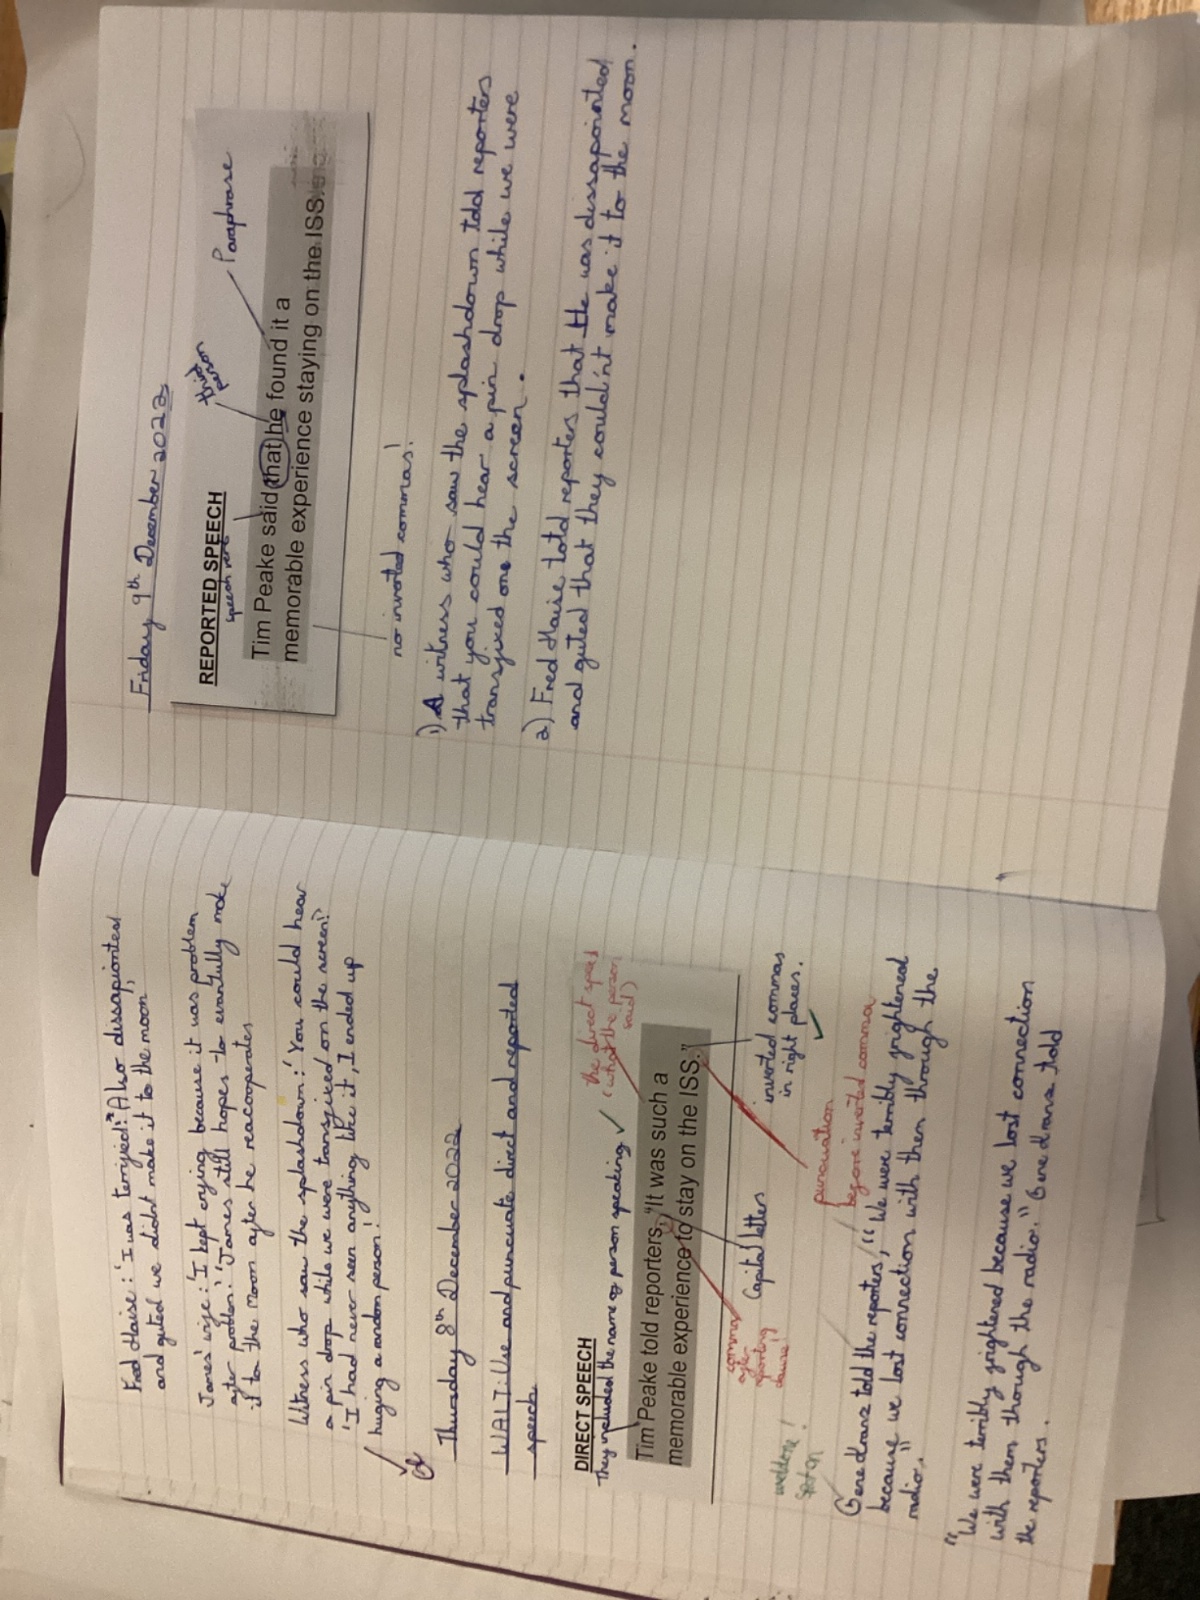 Fred Haise: 'I was terrified.' Also dissapionted
and guted we didnt make it to the moon
James' wife: 'I kept crying because it was problem
after problem.' 'James still hopes to evantfully make
it to the Moon after he reacooperates
Witness who saw the splashdown: 'You could hear
a pin drop while we were transfixed on the screen!'
'I had never seen anything like it, I ended up
huging a random person!'
Thursday 8th December 2022
WALT: Use and punctuate direct and reported
speech
DIRECT SPEECH
They included the name of person speaking ✓
the direct speech
(what the person
said)
Tim Peake told reporters, "It was such a
memorable experience to stay on the ISS."
comma
after
reporting
clause!
Capital letters
inverted commas
in right places.
✓
puncuation
before inverted comma
welldone!
Spot on
Gene Kranz told the reporters, "We were terribly frightened
because we lost connection with them through the
radio."
"We were terribly frightened because we lost connection
with them though the radio." Gene Kranz told
the reporters.
Friday 9th December 2022
REPORTED SPEECH
speech verb
third
person
Paraphrase
Tim Peake said that he found it a
memorable experience staying on the ISS.
no inverted commas!
1) A witness who saw the splashdown told reporters
that you could hear a pin drop while we were
transfixed one the screen.
2) Fred Haise told reporters that he was dissapointed
and guted that they could'nt make it to the moon.